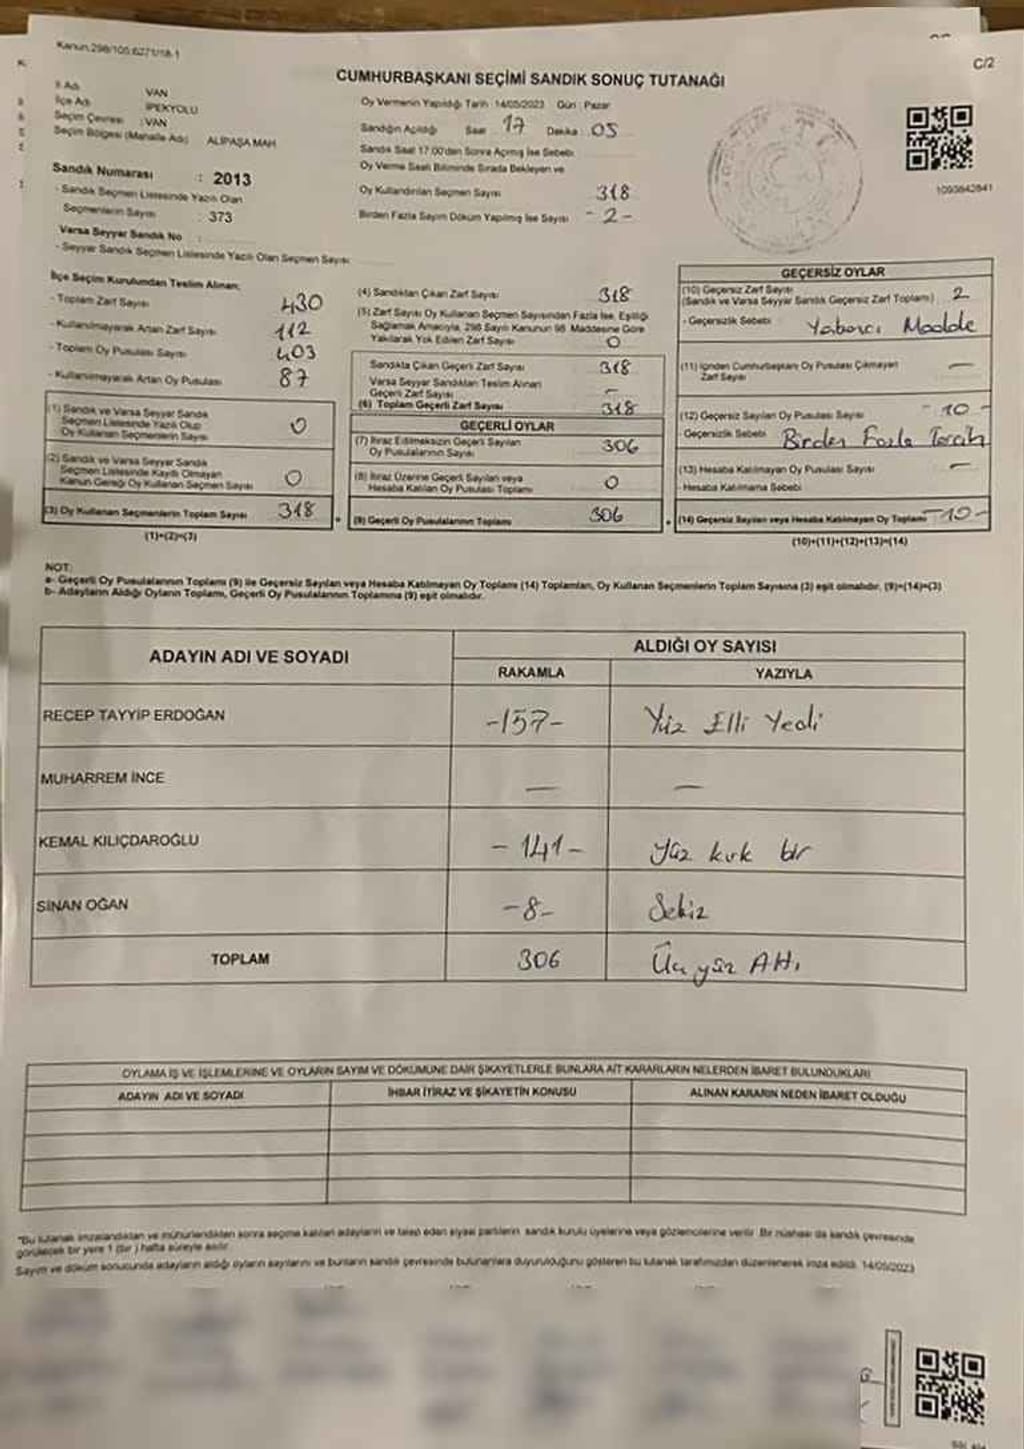 Kanun.298/105.6271/18-1
C/2
CUMHURBAŞKANI SEÇİMİ SANDIK SONUÇ TUTANAĞI
İl Adı VAN
İlçe Adı İPEKYOLU
Seçim Çevresi : VAN
Seçim Bölgesi (Mahalle Adı) ALİPAŞA MAH
Sandık Numarası : 2013
- Sandık Seçmen Listesinde Yazılı Olan
Seçmenlerin Sayısı : 373
Varsa Seyyar Sandık No :
- Seyyar Sandık Seçmen Listesinde Yazılı Olan Seçmen Sayısı
Oy Vermenin Yapıldığı Tarih 14/05/2023 Gün : Pazar
Sandığın Açıldığı Saat 17 Dakika 05
Sandık Saat 17.00'den Sonra Açılmış İse Sebebi
Oy Verme Saati Bitiminde Sırada Bekleyen ve
Oy Kullandırılan Seçmen Sayısı 318
Birden Fazla Sayım Döküm Yapılmış İse Sayısı - 2 -
1093842841
İlçe Seçim Kurulundan Teslim Alınan;
- Toplam Zarf Sayısı 430
- Kullanılmayarak Artan Zarf Sayısı 112
- Toplam Oy Pusulası Sayısı 403
- Kullanılmayarak Artan Oy Pusulası 87
(1) Sandık ve Varsa Seyyar Sandık
Seçmen Listesinde Yazılı Olup
Oy Kullanan Seçmenlerin Sayısı 0
(2) Sandık ve Varsa Seyyar Sandık
Seçmen Listesinde Kayıtlı Olmayan
Kanun Gereği Oy Kullanan Seçmen Sayısı 0
(3) Oy Kullanan Seçmenlerin Toplam Sayısı 318
(1)+(2)=(3)
(4) Sandıktan Çıkan Zarf Sayısı 318
(5) Zarf Sayısı Oy Kullanan Seçmen Sayısından Fazla İse, Eşitliği
Sağlamak Amacıyla, 298 Sayılı Kanunun 98. Maddesine Göre
Yakılarak Yok Edilen Zarf Sayısı 0
Sandıkta Çıkan Geçerli Zarf Sayısı 318
Varsa Seyyar Sandıktan Teslim Alınan
Geçerli Zarf Sayısı -
(6) Toplam Geçerli Zarf Sayısı 318
GEÇERLİ OYLAR
(7) İtiraz Edilmeksizin Geçerli Sayılan
Oy Pusulalarının Sayısı 306
(8) İtiraz Üzerine Geçerli Sayılan veya
Hesaba Katılan Oy Pusulası Toplamı 0
(9) Geçerli Oy Pusulalarının Toplamı 306
GEÇERSİZ OYLAR
(10) Geçersiz Zarf Sayısı 2
(Sandık ve Varsa Seyyar Sandık Geçersiz Zarf Toplamı)
- Geçersizlik Sebebi Yabancı Madde
(11) İçinden Cumhurbaşkanı Oy Pusulası Çıkmayan
Zarf Sayısı —
(12) Geçersiz Sayılan Oy Pusulası Sayısı - 10 -
- Geçersizlik Sebebi Birden Fazla Tercih
(13) Hesaba Katılmayan Oy Pusulası Sayısı —
- Hesaba Katılmama Sebebi
(14) Geçersiz Sayılan veya Hesaba Katılmayan Oy Toplamı - 10 -
(10)+(11)+(12)+(13)=(14)
NOT:
a- Geçerli Oy Pusulalarının Toplamı (9) ile Geçersiz Sayılan veya Hesaba Katılmayan Oy Toplamı (14) Toplamları, Oy Kullanan Seçmenlerin Toplam Sayısına (3) eşit olmalıdır. (9)+(14)=(3)
b- Adayların Aldığı Oyların Toplamı, Geçerli Oy Pusulalarının Toplamına (9) eşit olmalıdır.
ADAYIN ADI VE SOYADI ALDIĞI OY SAYISI
RAKAMLA YAZIYLA
RECEP TAYYİP ERDOĞAN -157- Yüz Elli Yedi
MUHARREM İNCE — —
KEMAL KILIÇDAROĞLU - 141 - Yüz kırk bir
SİNAN OĞAN -8- Sekiz
TOPLAM 306 Üç yüz Altı
OYLAMA İŞ VE İŞLEMLERİNE VE OYLARIN SAYIM VE DÖKÜMÜNE DAİR ŞİKAYETLERLE BUNLARA AİT KARARLARIN NELERDEN İBARET BULUNDUKLARI
ADAYIN ADI VE SOYADI İHBAR İTİRAZ VE ŞİKAYETİN KONUSU ALINAN KARARIN NEDEN İBARET OLDUĞU
"Bu tutanak imzalandıktan ve mühürlendikten sonra seçime katılan adayların ve talep eden siyasi partilerin sandık kurulu üyelerine veya gözlemcilerine verilir. Bir nüshası da sandık çevresinde
görülecek bir yere 1 (bir ) hafta süreyle asılır.
Sayım ve döküm sonucunda adayların aldığı oyların sayılarını ve bunların sandık çevresinde bulunanlara duyurulduğunu gösteren bu tutanak tarafımızdan düzenlenerek imza edildi. 14/05/2023